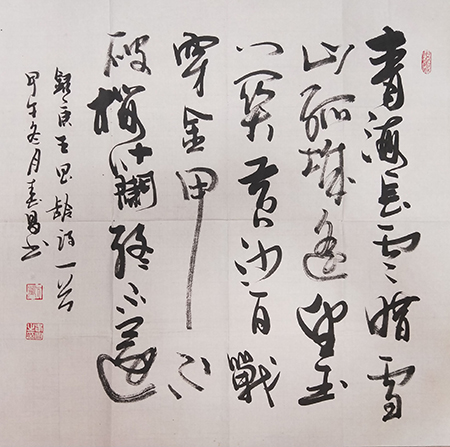 青海長雲暗雪
山孤城遙望玉
门関黄沙百戰
穿金甲不
破樓蘭終不還
録唐王昌齡詩一首
甲午冬月昌书